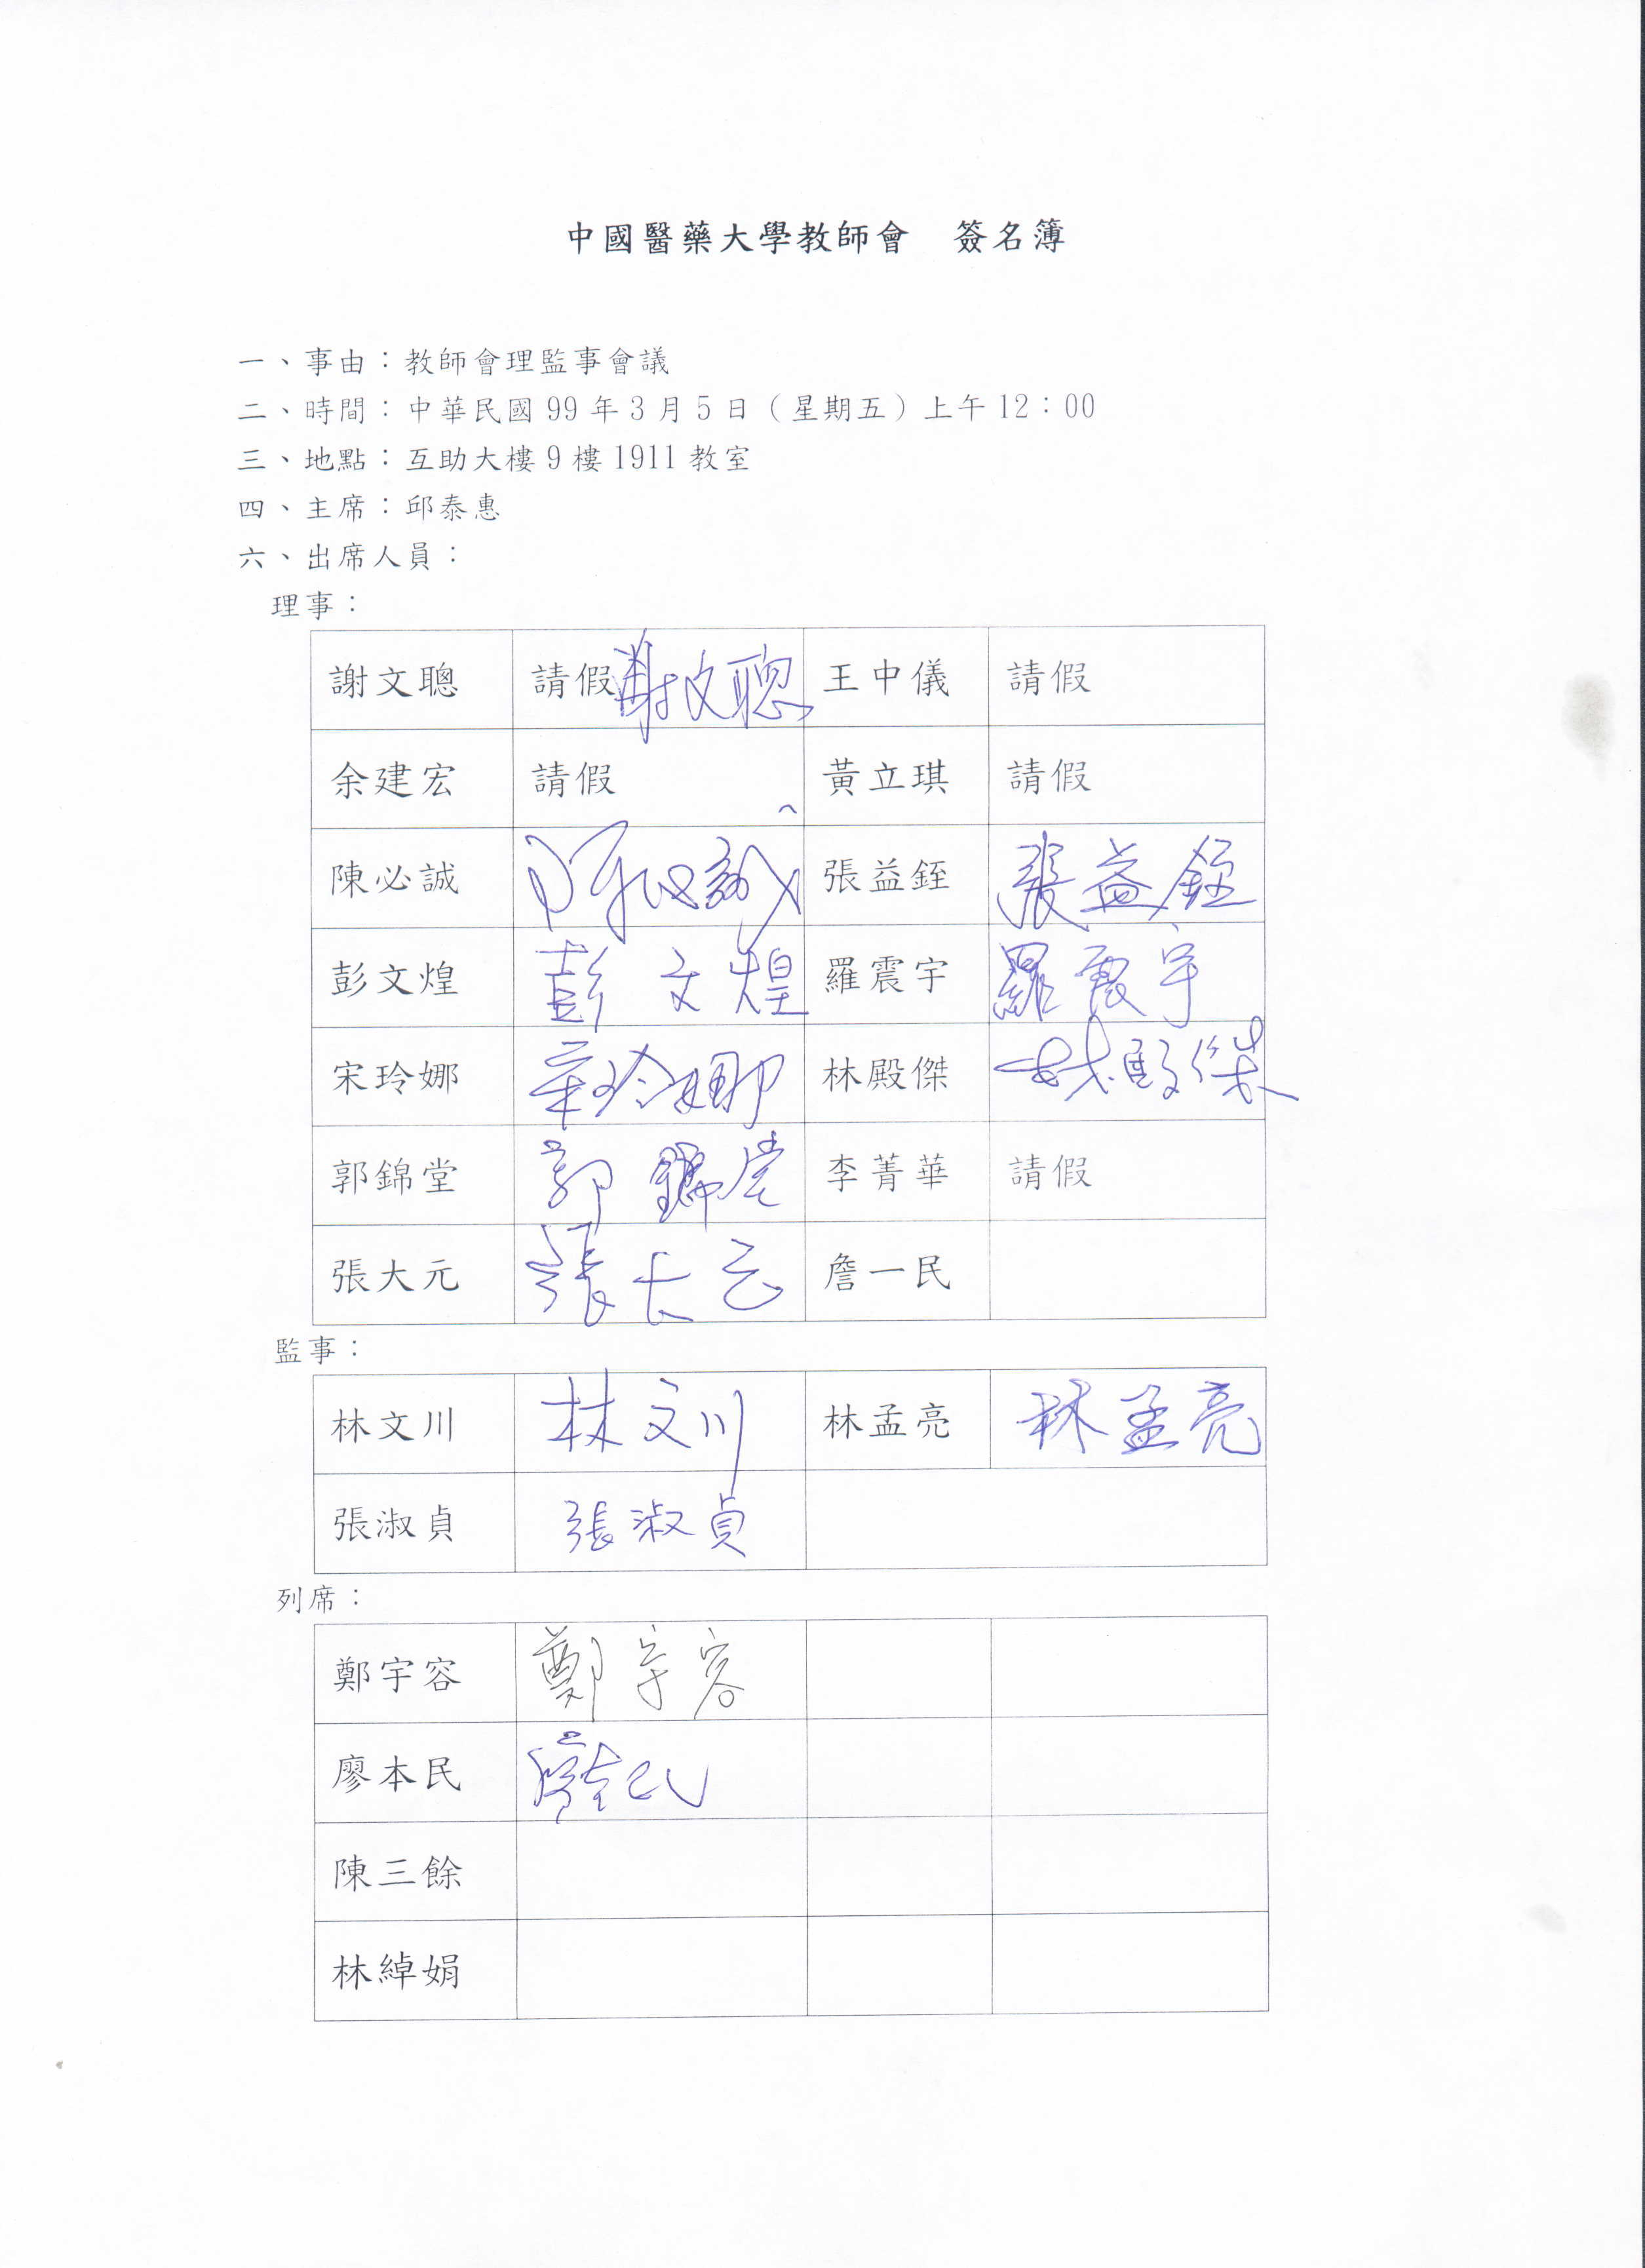 中國醫藥大學教師會　簽名簿
一、事由：教師會理監事會議
二、時間：中華民國 99 年 3 月 5 日（星期五）上午 12：00
三、地點：互助大樓 9 樓 1911 教室
四、主席：邱泰惠
六、出席人員：
理事：
謝文聰 請假 謝文聰 王中儀 請假
余建宏 請假 黃立琪 請假
陳必誠 陳必誠 張益銍 張益銍
彭文煌 彭文煌 羅震宇 羅震宇
宋玲娜 宋玲娜 林殿傑 林殿傑
郭錦堂 郭錦堂 李菁華 請假
張大元 張大元 詹一民
監事：
林文川 林文川 林孟亮 林孟亮
張淑貞 張淑貞
列席：
鄭宇容 鄭宇容
廖本民 廖本民
陳三餘
林綽娟